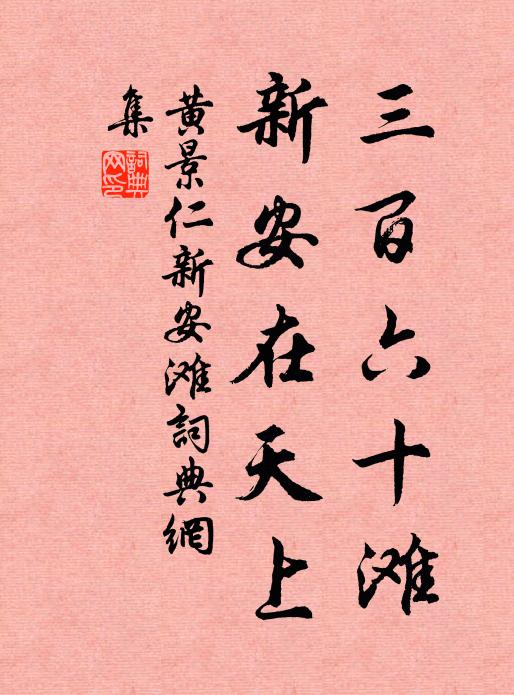 三百六十滩
新安在天上
黄景仁新安滩詞典網
集
詞典
网印